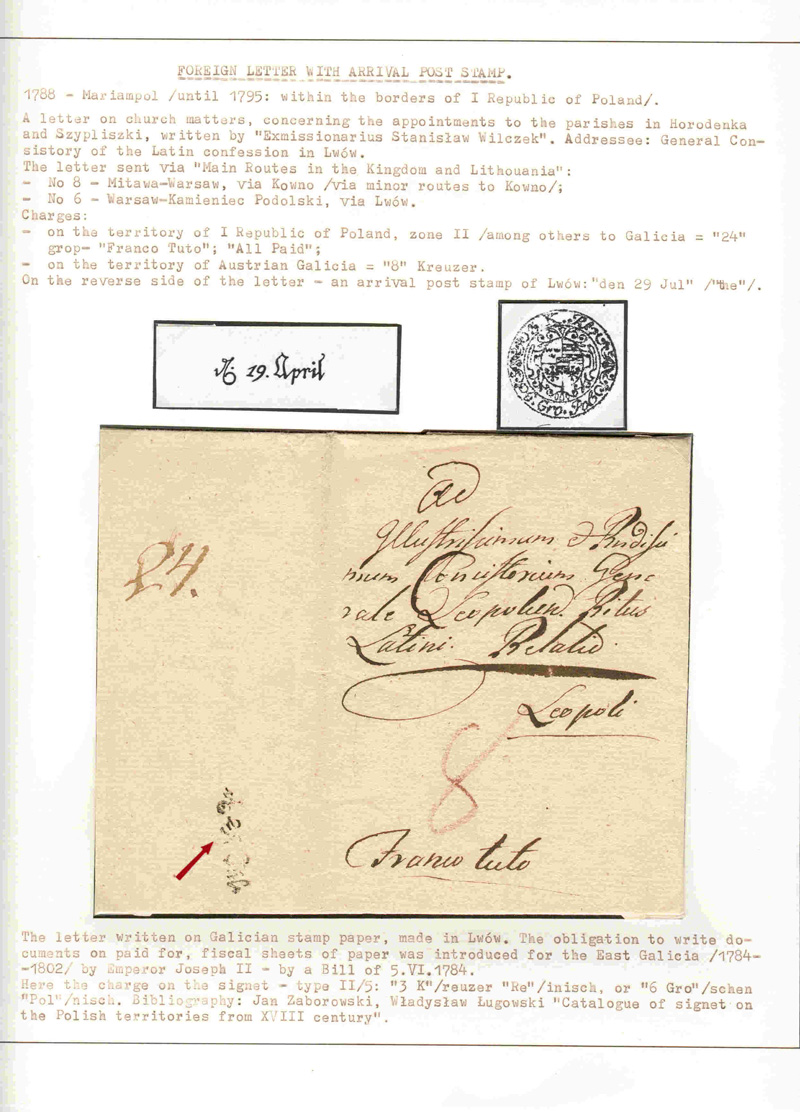 FOREIGN LETTER WITH ARRIVAL POST STAMP.
1788 - Mariampol /until 1795: within the borders of I Republic of Poland/.
A letter on church matters, concerning the appointments to the parishes in Horodenka
and Szypliszki, written by "Exmissionarius Stanisław Wilczek". Addressee: General Con-
sistory of the Latin confession in Lwów.
The letter sent via "Main Routes in the Kingdom and Lithouania":
- No 8 - Mitawa-Warsaw, via Kowno /via minor routes to Kowno/;
- No 6 - Warsaw-Kamieniec Podolski, via Lwów.
Charges:
- on the territory of I Republic of Poland, zone II /among others to Galicia = "24"
grop- "Franco Tuto"; "All Paid";
- on the territory of Austrian Galicia = "8" Kreuzer.
On the reverse side of the letter - an arrival post stamp of Lwów:"den 29 Jul" /"the"/.
19. April
6. Gro. Pol
Ad
Illustrissimum &
mum Concistorium Gene
rale Leopolien. Ritus
Latini. Relatio
Leopoli
24.
8
Franco tuto
The letter written on Galician stamp paper, made in Lwów. The obligation to write do-
cuments on paid for, fiscal sheets of paper was introduced for the East Galicia /1784-
-1802/ by Emperor Joseph II - by a Bill of 5.VI.1784.
Here the charge on the signet - type II/5: "3 K"/reuzer "Re"/inisch, or "6 Gro"/schen
"Pol"/nisch. Bibliography: Jan Zaborowski, Władysław Ługowski "Catalogue of signet on
the Polish territories from XVIII century".